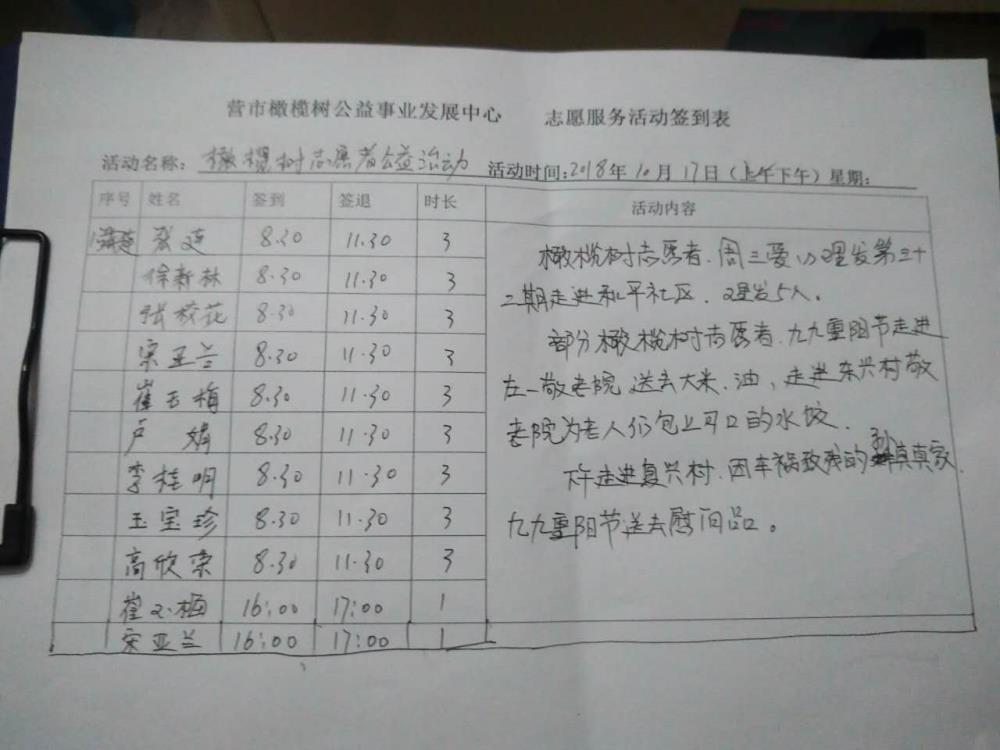 营市橄榄树公益事业发展中心 志愿服务活动签到表
活动名称: 橄榄树志愿者公益活动 活动时间:2018年10月17日(上午下午)星期:
序号 姓名 签到 签退 时长 活动内容
张莲 8.30 11.30 3
徐新林 8.30 11.30 3
张校花 8.30 11.30 3
宋亚兰 8.30 11.30 3
崔玉梅 8.30 11.30 3
卢娟 8.30 11.30 3
李桂明 8.30 11.30 3
王宝珍 8.30 11.30 3
高欣荣 8.30 11.30 3
崔玉梅 16:00 17:00 1
宋亚兰 16:00 17:00 1
橄榄树志愿者.周三爱心理发第三十
二期走进和平社区.理发5人。
部分橄榄树志愿者.九九重阳节走进
左一敬老院送去大米、油,走进东兴村敬
老院为老人们包上可口的水饺.
下午走进复兴村.因车祸致残的孙真真家.
九九重阳节送去慰问品。